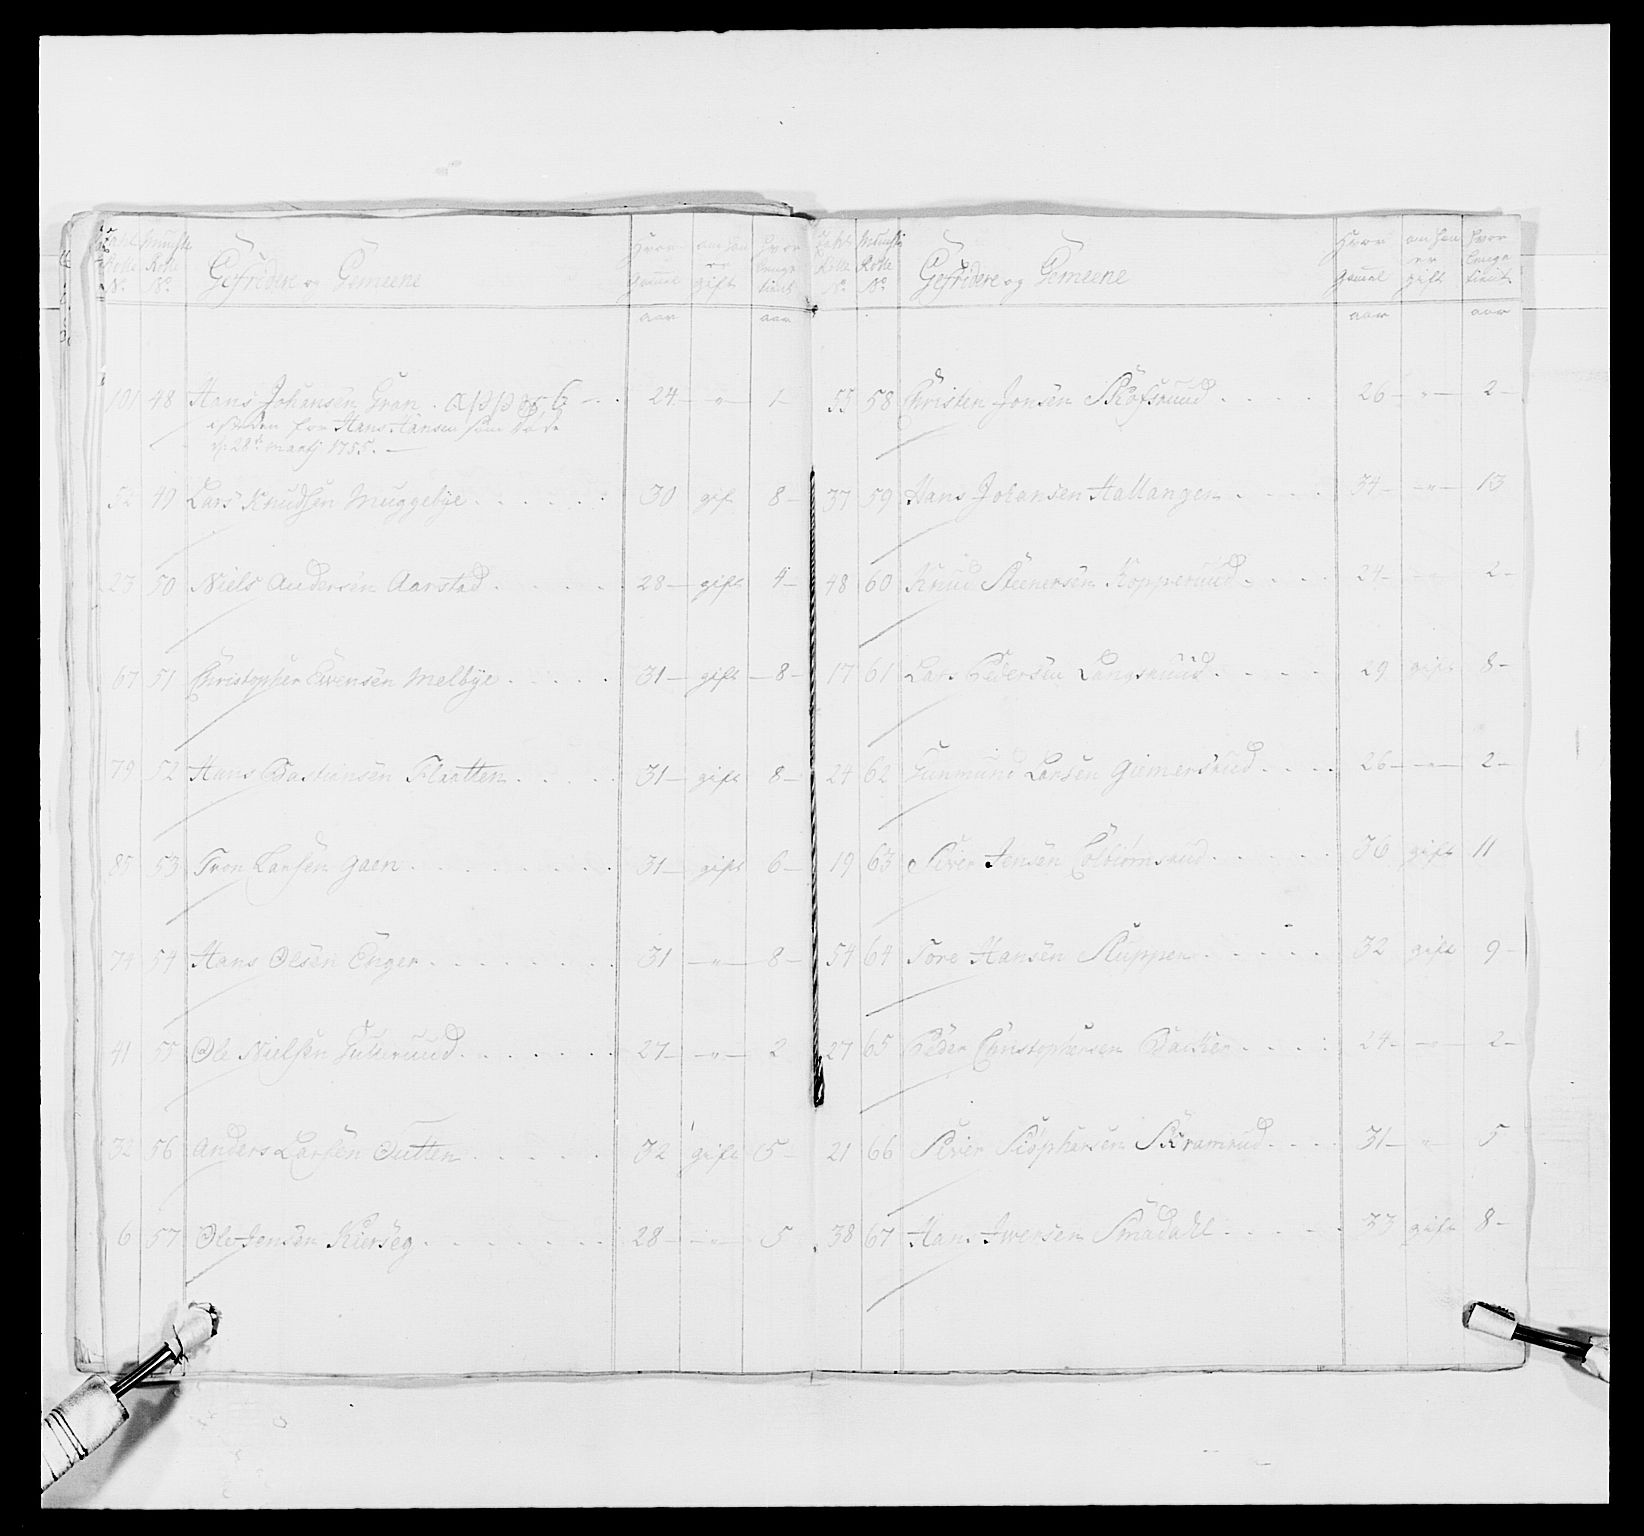 Rolle Rolle Gefridere og Gemeene Hvor gammel om han er gift hvor lenge tient
No No
aar aar
101 48 Hans Johansen Gran 24 — " — 1 —
Hans Hansen som døde
28de Martj 1755. —
52 49 Lars Knudsen Muggebye 30 gift 8 —
23 50 Niels Andersen Aarstad 28 — gift 4 —
67 51 Christopher Evensen Melbye 31 — gift — 8 —
79 52 Hans Bastiansen Flaatten 31 — gift 8 —
85 53 Tron Larsen Gaen 31 — gift 6 —
74 54 Hans Olsen Enger 31 — " — 8 —
41 55 Ole Nielsen 27 — " — 2
32 56 Anders Larsen 32 gift 5 —
6 57 Ole Jensen 28 — " — 5
Rolle Rolle Gefridere og Gemeene Hvor gammel om han er gift hvor lenge tient
No No
aar aar
55 58 Christen Jonsen 26 — " — 2 —
37 59 Hans Johansen Hallangen 34 — " — 13
48 60 Knud Steenersen Kopperuud 24 — 2 —
17 61 Lars Pedersen Langsruud 29 gift 8 —
24 62 Gunmund Larsen 26 — " — 2 —
19 63 Siver Jensen Colbiørnsrud 36 gift 11
54 64 Tore Hansen 32 gift 9 —
27 65 Peder Christophersen Backen 24 — " — 2 —
21 66 Siver Kramrud 31 — " 5
38 67 Hans Iversen Smådahl 33 gift 8 —